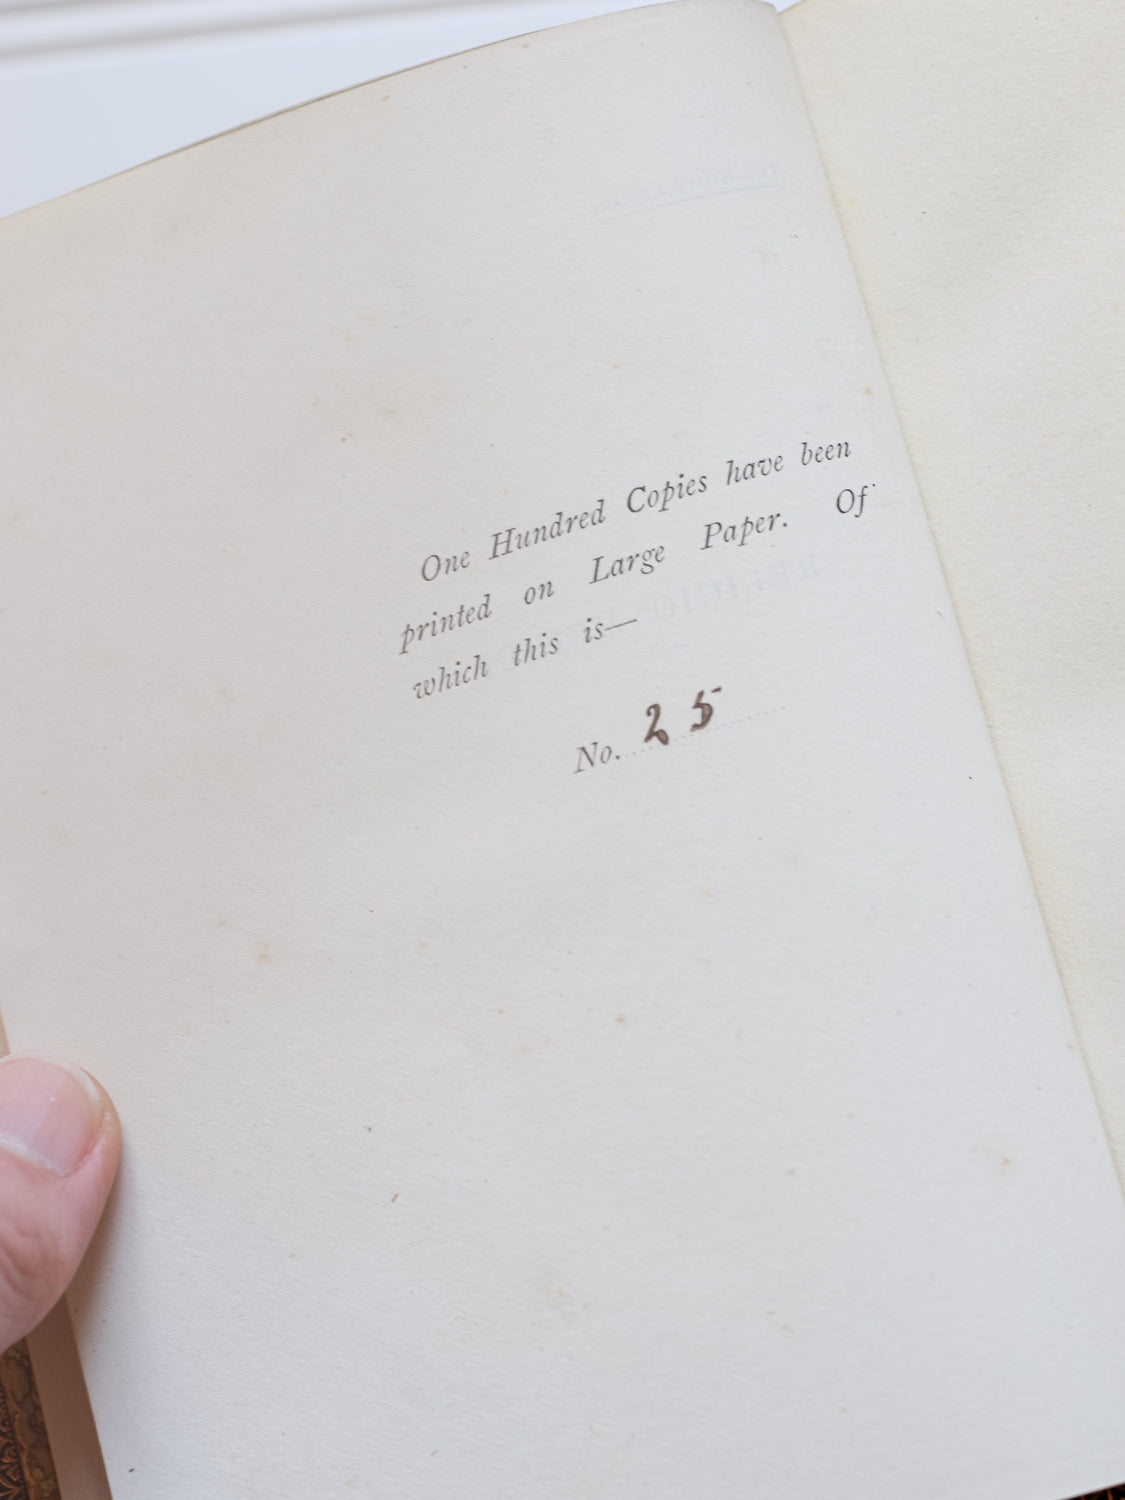 One Hundred Copies have been
printed on Large Paper. Of
which this is—
No. 25